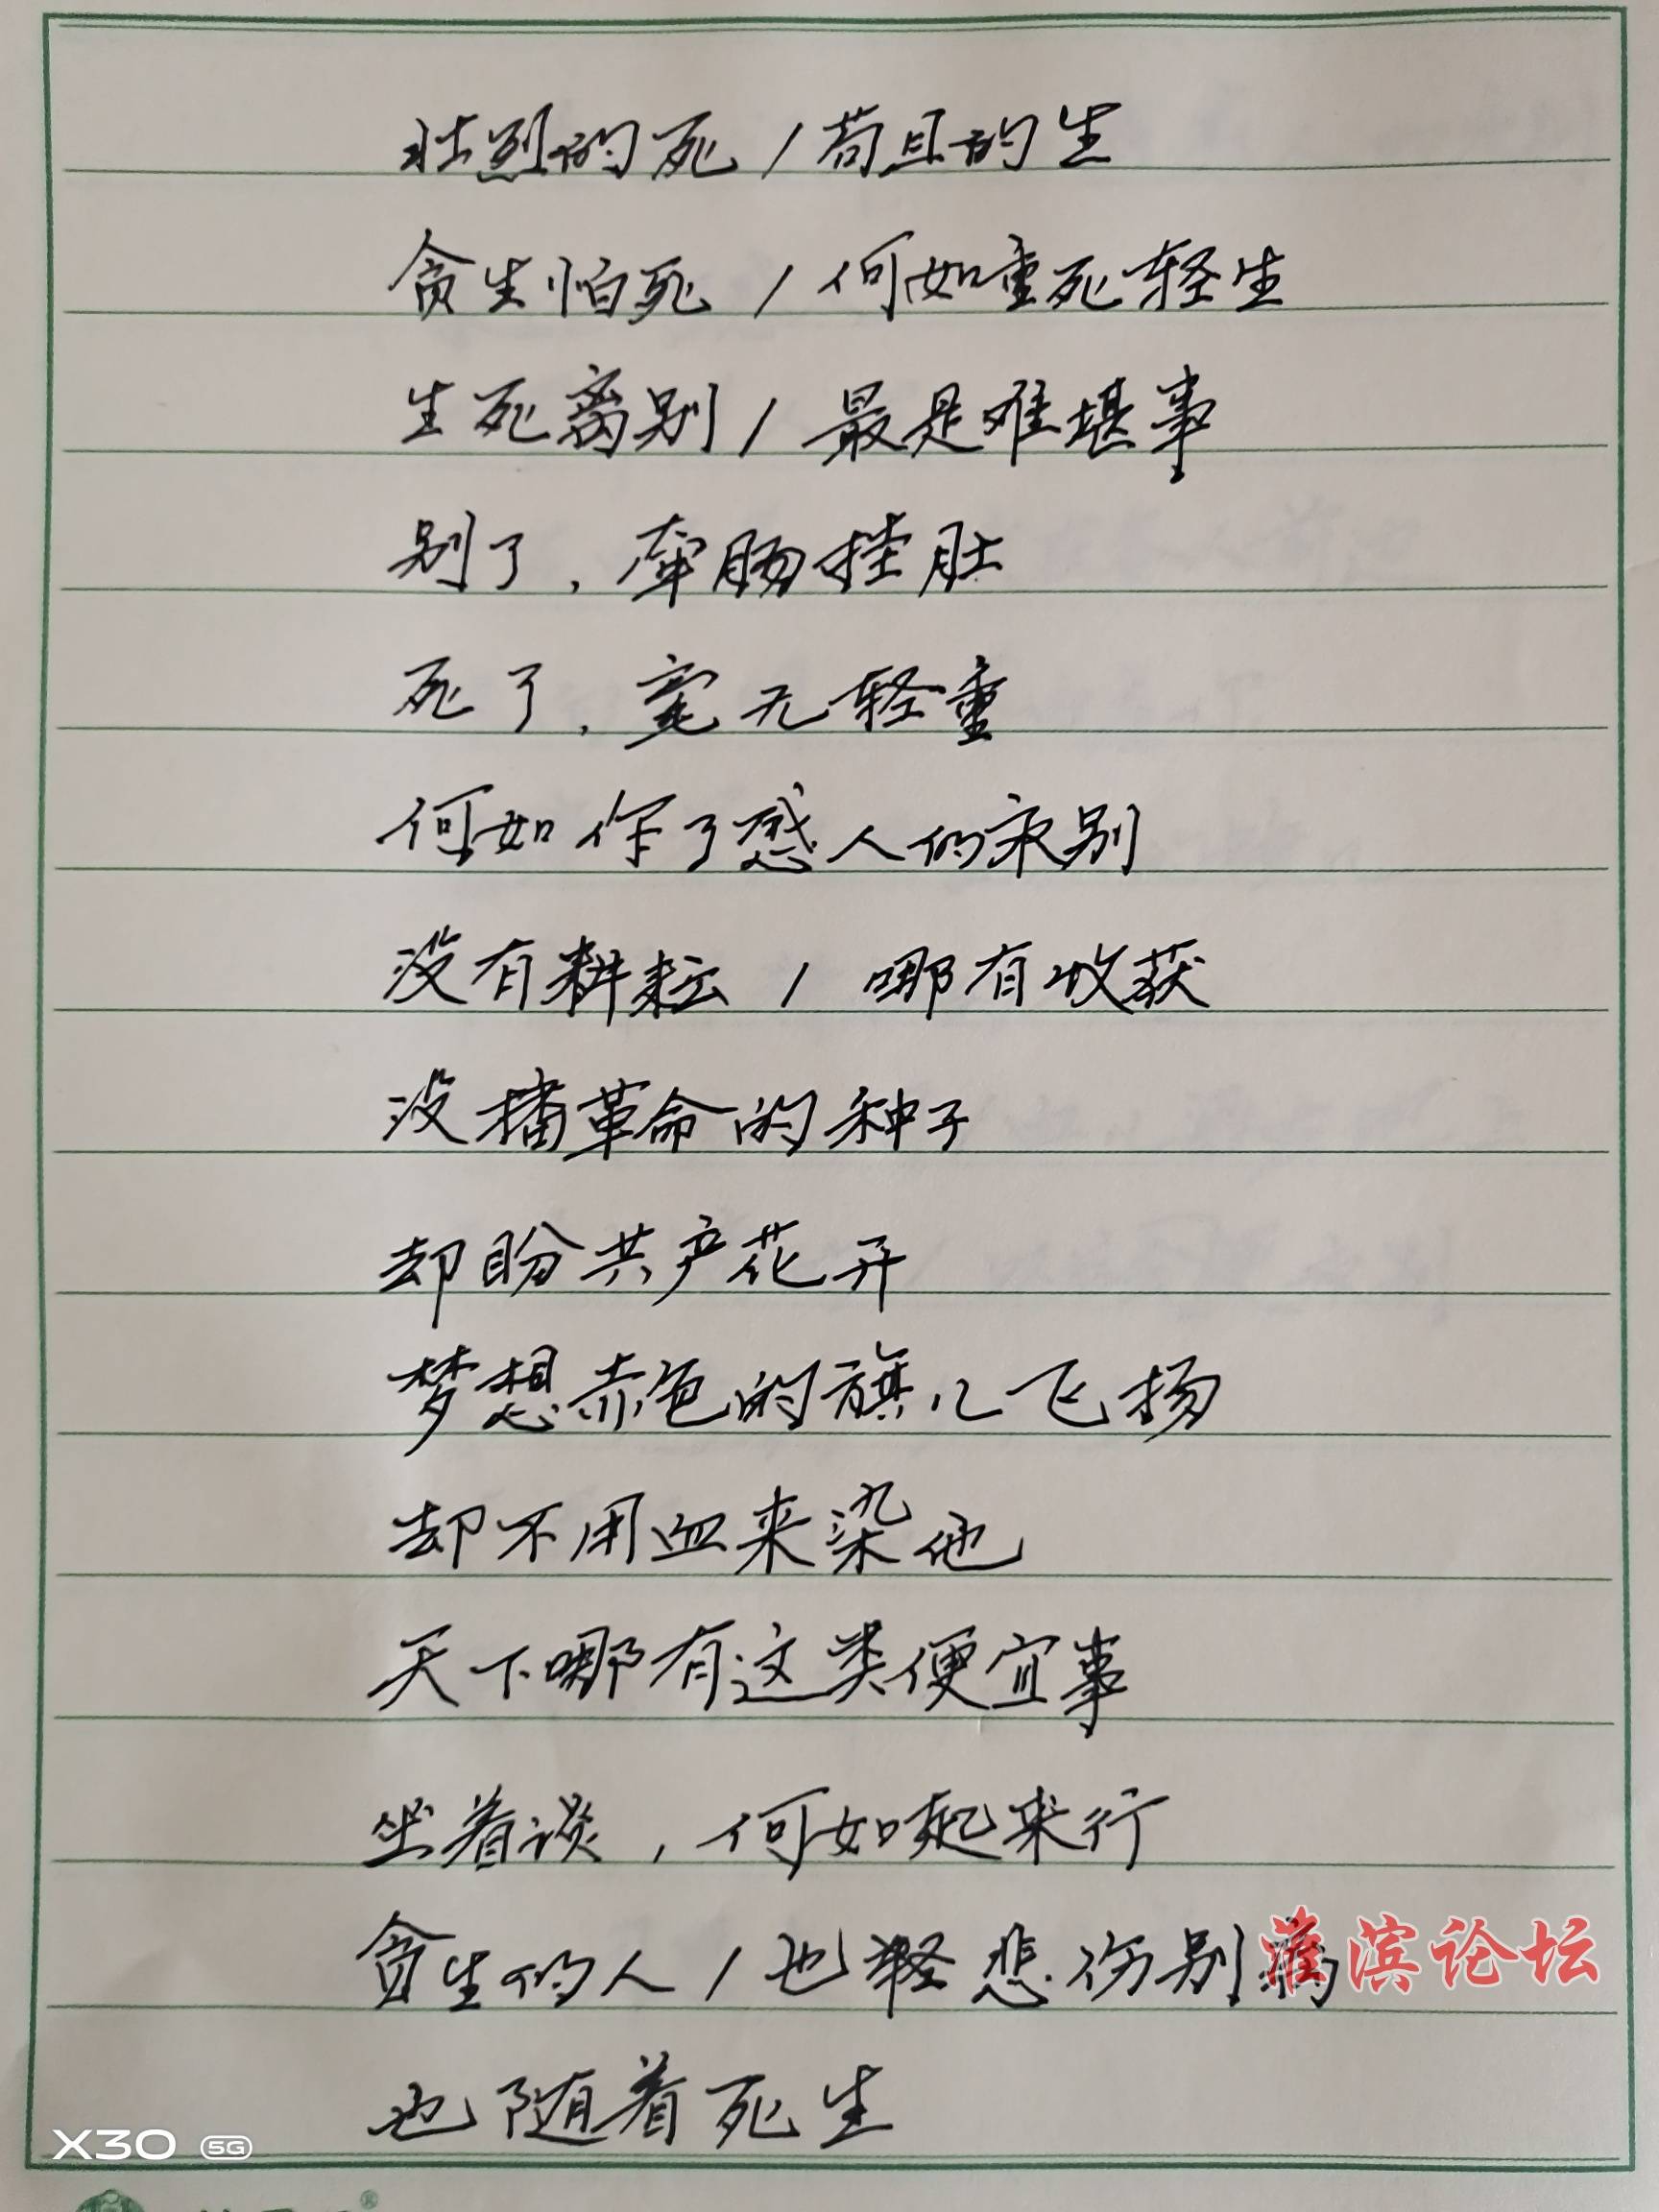 壮烈的死/苟且的生
贪生怕死/何如重死轻生
生死离别/最是难堪事
别了，牵肠挂肚
死了，毫无轻重
何如作了感人的永别
没有耕耘/哪有收获
没播革命的种子
却盼共产花开
梦想赤色的旗儿飞扬
却不用血来染他
天下哪有这类便宜事
坐着谈，何如起来行
贪生的人/也悲伤别离
也随着死生
淮滨论坛
X30 5G